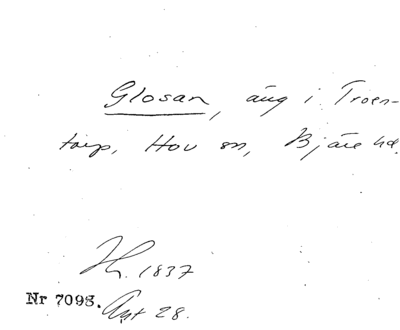 Glosan, äng i Troen-
torp, Hov sn, Bjäre hd.
Th. 1837
Nr 7098. Ant 28.